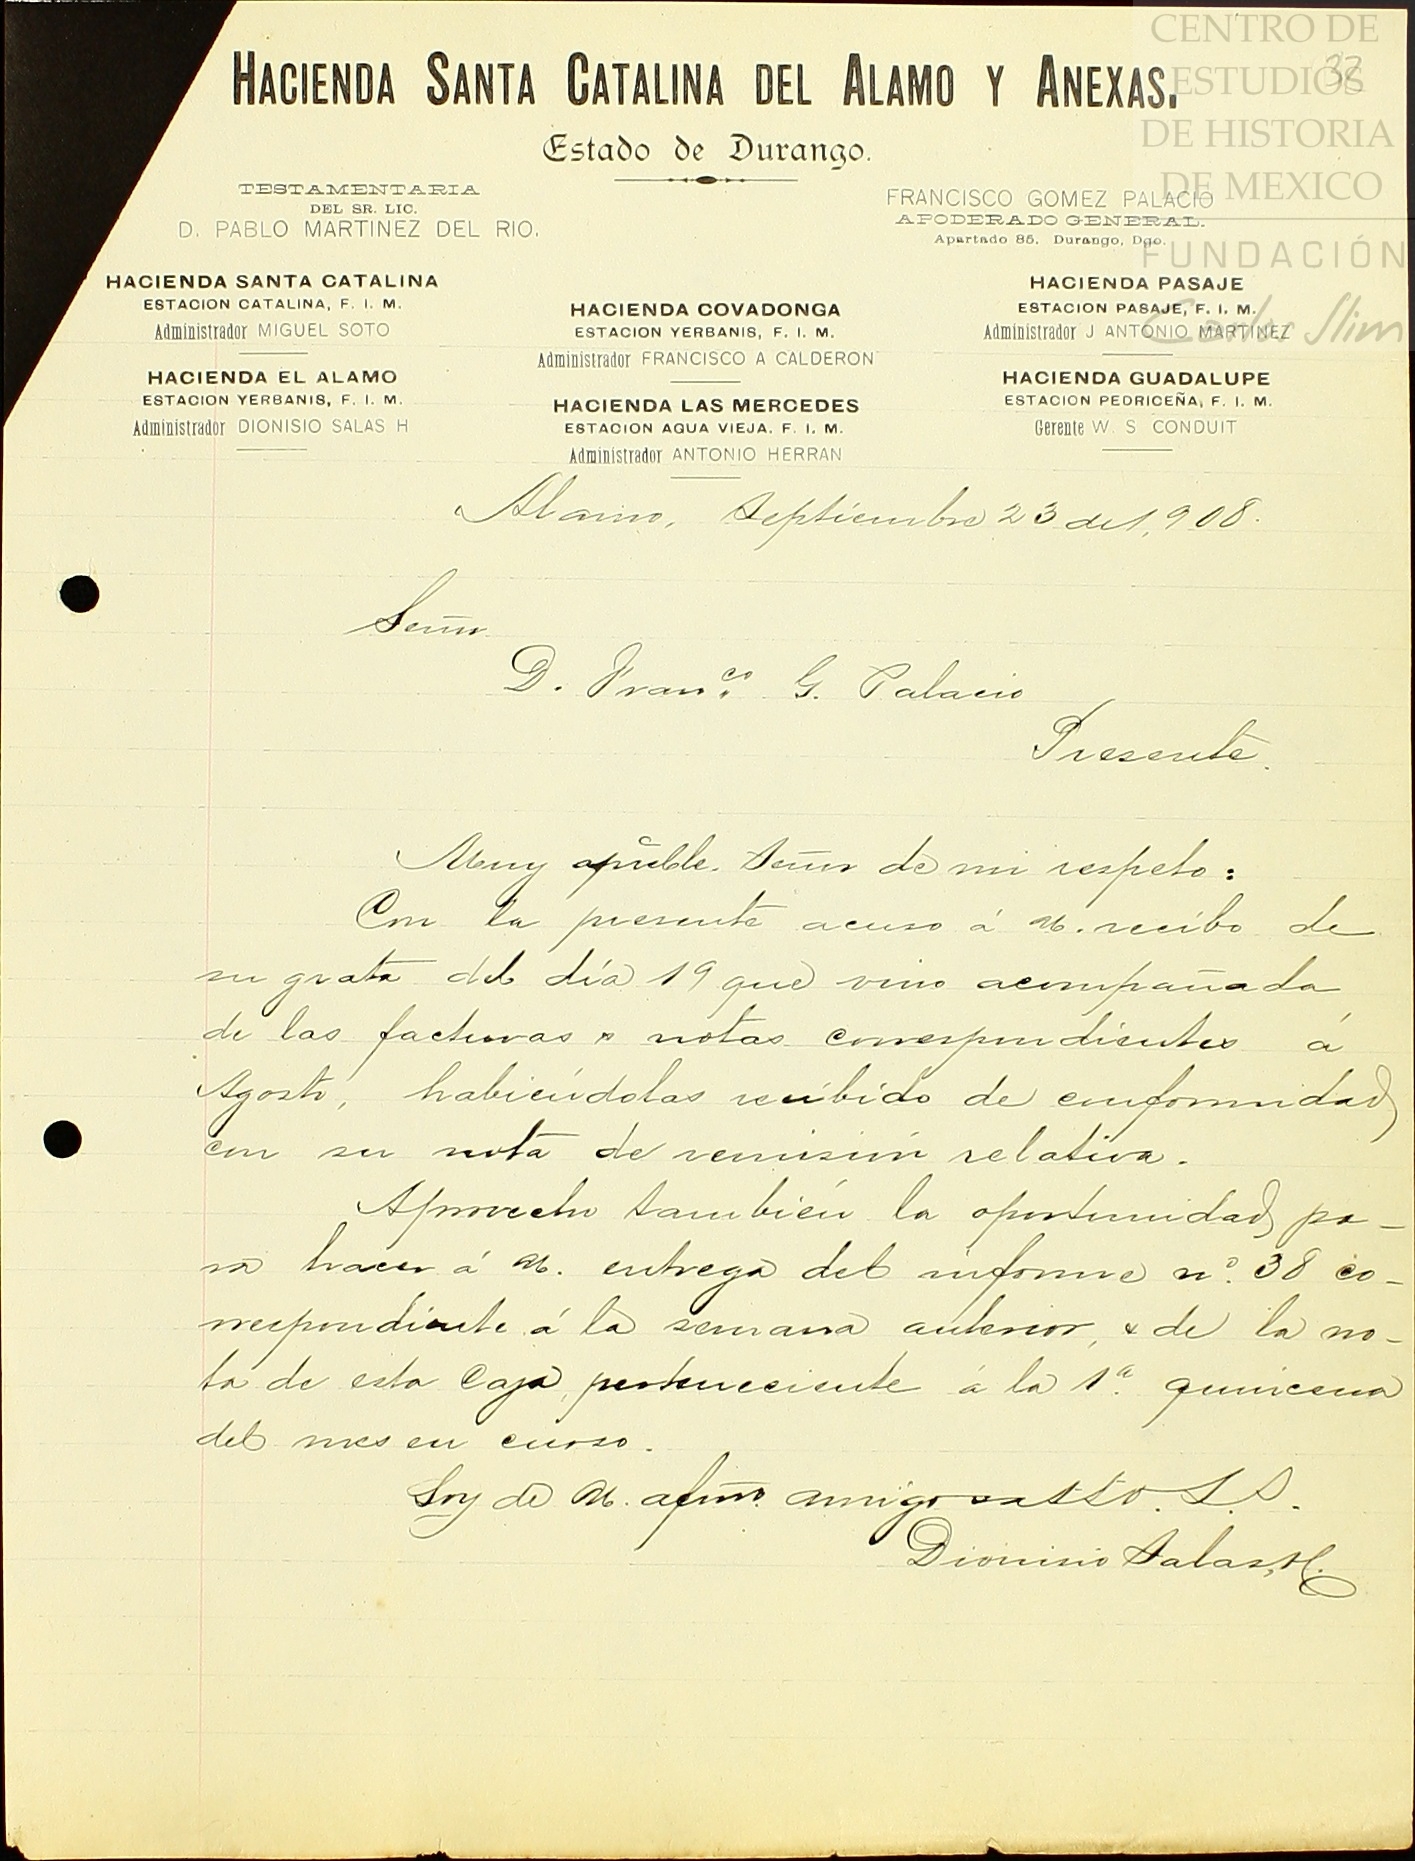 CENTRO DE
ESTUDIOS
DE HISTORIA
DE MEXICO
FUNDACIÓN
Carlos Slim
32
HACIENDA SANTA CATALINA DEL ALAMO Y ANEXAS.
Estado de Durango.
TESTAMENTARIA
DEL SR. LIC.
D. PABLO MARTINEZ DEL RIO.
FRANCISCO GOMEZ PALACIO
APODERADO GENERAL.
Apartado 85. Durango, Dgo.
HACIENDA SANTA CATALINA
ESTACION CATALINA, F. I. M.
Administrador MIGUEL SOTO
HACIENDA EL ALAMO
ESTACION YERBANIS, F. I. M.
Administrador DIONISIO SALAS H
HACIENDA COVADONGA
ESTACION YERBANIS, F. I. M.
Administrador FRANCISCO A CALDERON
HACIENDA LAS MERCEDES
ESTACION AGUA VIEJA. F. I. M.
Administrador ANTONIO HERRAN
HACIENDA PASAJE
ESTACION PASAJE, F. I. M.
Administrador J ANTONIO MARTINEZ
HACIENDA GUADALUPE
ESTACION PEDRICEÑA, F. I. M.
Gerente W. S CONDUIT
Alamo, Septiembre 23 de 1,908.
Señor
D. Fran.co G. Palacio
Presente.
Muy apreble. Señor de mi respeto:
Con la presente acuso á U. recibo de
su grata del día 19 que vino acompañada
de las facturas y notas correspondientes á
Agosto, habiéndolas recibido de conformidad
con su nota de remisión relativa.
Aprovecho también la oportunidad pa-
ra hacer á U. entrega del informe nº. 38 co-
rrespondiente á la semana anterior, y de la no-
ta de esta Caja, perteneciente á la 1ª. quincena
del mes en curso.
Soy de U. afmo. amigo atto. S. S.
Dionisio Salas, H.